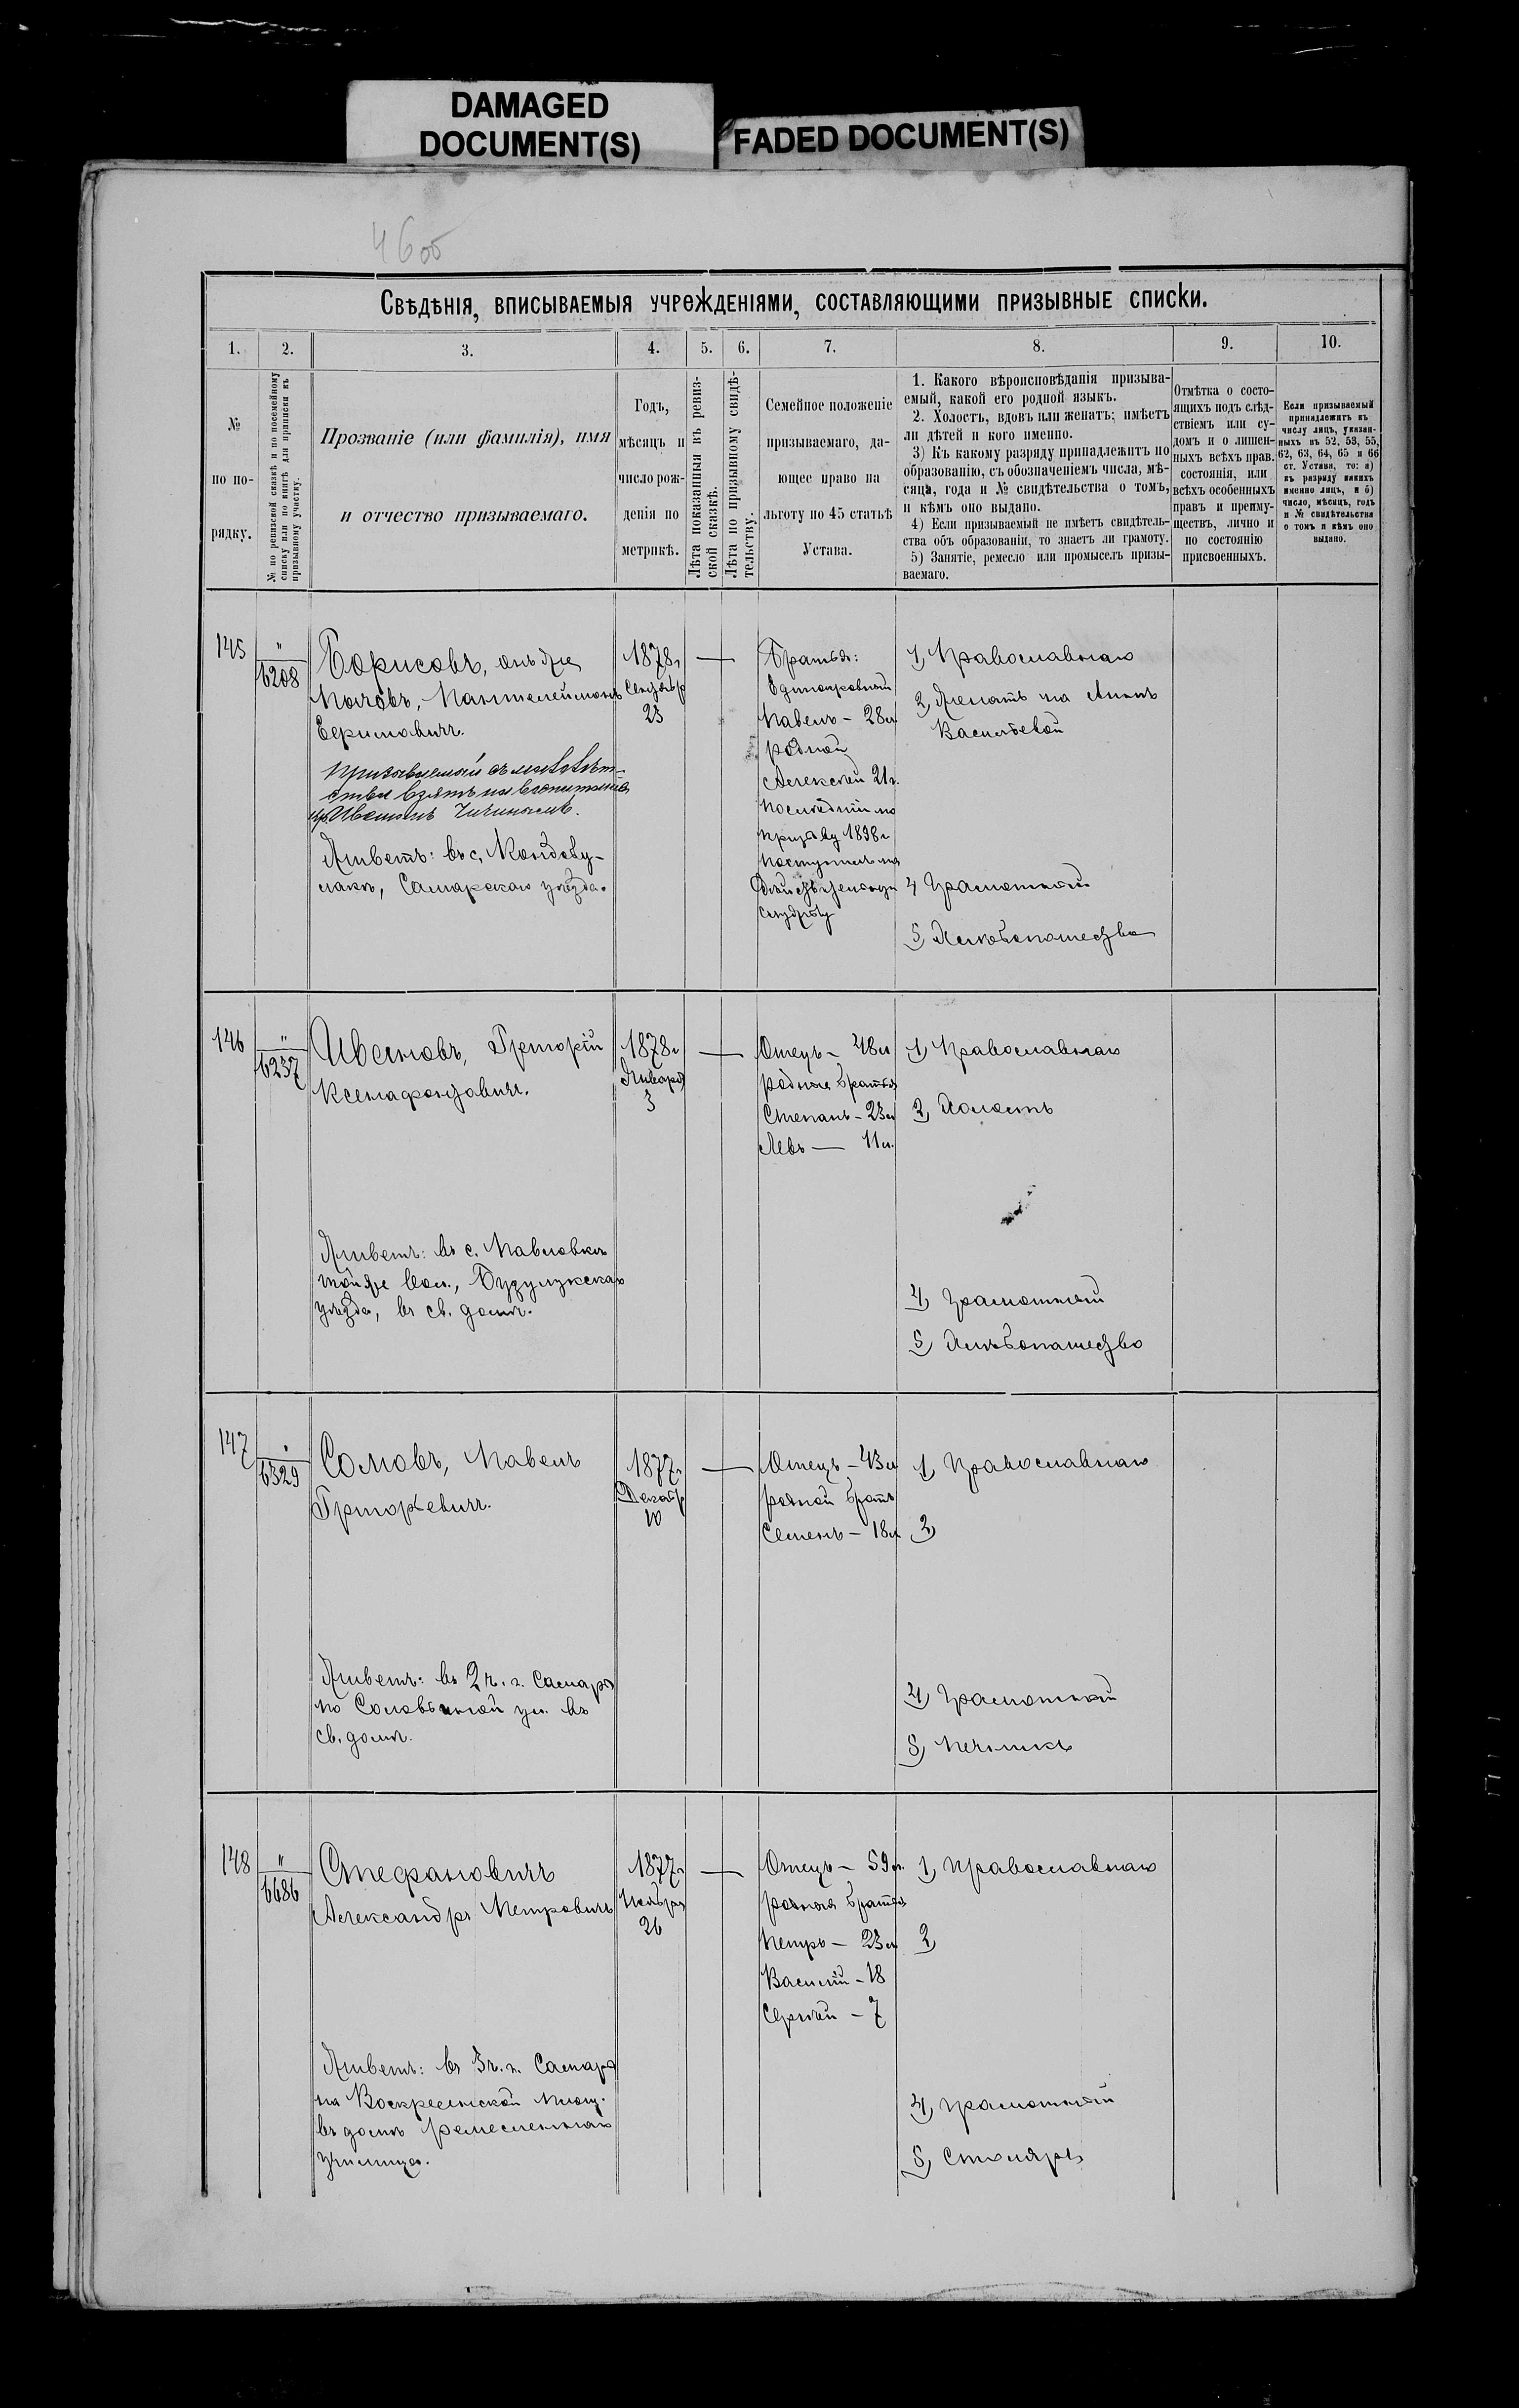 DAMAGED
DOCUMENT(S)
FADED DOCUMENT(S)
460б
Свѣдѣнія, вписываемыя учрежденіями, составляющими призывные списки.
1. 2. 3. 4. 5. 6. 7. 8. 9. 10.
№
по по-
рядку.
№ по ревизской сказкѣ и по посемейному
списку или по книгѣ для приписки къ
призывному участку.
Прозваніе (или фамилія), имя
и отчество призываемаго.
Годъ,
мѣсяцъ и
число рож-
денія по
метрикѣ.
Лѣта показанныя въ ревиз-
ской сказкѣ.
Лѣта по призывному свидѣ-
тельству.
Семейное положеніе
призываемаго, да-
ющее право на
льготу по 45 статьѣ
Устава.
1. Какого вѣроисповѣданія призыва-
емый, какой его родной языкъ.
2. Холостъ, вдовъ или женатъ; имѣетъ
ли дѣтей и кого именно.
3) Къ какому разряду принадлежитъ по
образованію, съ обозначеніемъ числа, мѣ-
сяца, года и № свидѣтельства о томъ,
и кѣмъ оно выдано.
4) Если призываемый не имѣетъ свидѣтель-
ства объ образованіи, то знаетъ ли грамоту.
5) Занятіе, ремесло или промыселъ призы-
ваемаго.
Отмѣтка о состо-
ящихъ подъ слѣд-
ствіемъ или су-
домъ и о лишен-
ныхъ всѣхъ прав.
состоянія, или
всѣхъ особенныхъ
правъ и преиму-
ществъ, лично и
по состоянію
присвоенныхъ.
Если призываемый
принадлежитъ къ
числу лицъ, указан-
ныхъ въ 52, 53, 55,
62, 63, 64, 65 и 66
ст. Устава, то: а)
къ разряду какихъ
именно лицъ, и б)
число, мѣсяцъ, годъ
и № свидѣтельства
о томъ и кѣмъ оно
выдано.
145
"
6208
Борисовъ, онъ же
Пантелеймонъ
Призываемый съ малолѣт-
ства взятъ на воспитаніе
Живетъ: въ с. Кондабу-
лакѣ, Самарскаго уѣзда.
1878г.
Сентябр
23
Братья:
Единокровный
Павелъ - 28л
родной
Алексѣй 21г.
Послѣдній по
призыву 1898г
поступилъ на
дѣйствительную
службу
1) Православнаго
2) Женатъ на Аннѣ
Васильевой
4) Грамотный
5) Хлѣбопашество
146
"
6237
Ивановъ, Григорій
Ксенофонтовичъ.
Живетъ: въ с. Павловкѣ
той же вол., Бузулукскаго
уѣзда, въ св. домѣ.
1878г
Января
3
Отецъ - 48л
родные братья
Степанъ - 23л
Левъ — 11л.
1) Православнаго
2) Холостъ
4) Грамотный
5) Хлѣбопашество
147
"
6329
Сомовъ, Павелъ
Григорьевичъ.
Живетъ: въ 2 ч. г. Самары
по Соловьиной ул. въ
св. домѣ.
1877г.
Декабр
10
Отецъ - 43л
родной братъ
Семенъ - 18л
1) Православнаго
2)
4) Грамотный
5) Печникъ
148
"
6686
Стефановичъ
Александръ Петровичъ
Живетъ: въ 3 ч. г. Самары
на Воскресенской площ.
въ домѣ ремесленнаго
училища.
1877г.
Ноября
26
Отецъ - 59л.
родные братья
Петръ - 23л
Василій - 18
Сергѣй - 7
1) Православнаго
2)
4) Грамотный
5) Столяръ